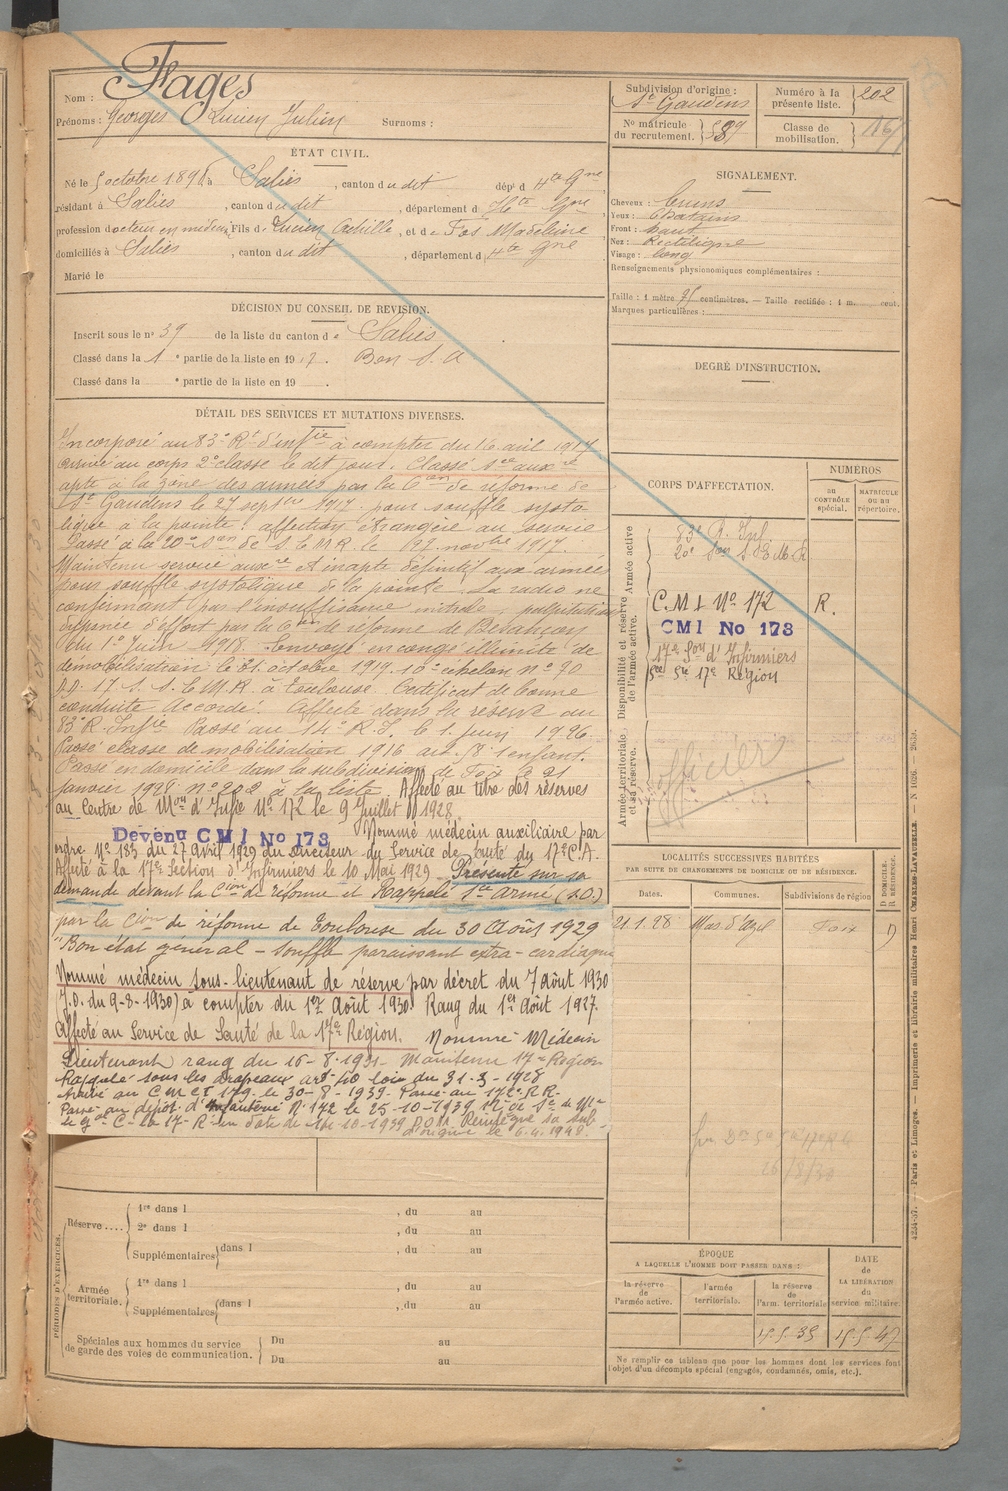 Nom : Fages
Prénoms : Georges Lucien Julien Surnoms :
ÉTAT CIVIL.
Né le 5 octobre 1898 à Salies, canton du dit, dép^t d Hte Gne
résidant à Salies, canton du dit, département d Hte Gne
profession docteur en médecine, Fils de Lucien Achille, et de Fos Madeleine
domiciliés à Salies, canton du dit, département d Hte Gne
Marié le
DÉCISION DU CONSEIL DE REVISION.
Inscrit sous le n° 39 de la liste du canton de Salies
Classé dans la 1e partie de la liste en 1917. Bon S. A
Classé dans la e partie de la liste en 19 .
DÉTAIL DES SERVICES ET MUTATIONS DIVERSES.
Incorporé au 83e Rt d'infie à compter du 16 avril 1917
arrivé au corps 2e classe le dit jour. Classé sce auxre
apte à la zone des armées par la Con de réforme de
St Gaudens le 27 septbre 1917 pour souffle systo
lique à la pointe : affection étrangère au service
Passé à la 20e Son de S.E.M.R. le 22 novbre 1917.
Maintenu service auxre et inapte définitif aux armées
pour souffle systolique de la pointe. La radio ne
confirmant pas l'insuffisance mitrale, palpitations
dyspnée d'effort par la Con de réforme de Besançon
du 1er Juin 1918. Envoyé en congé illimité de
démobilisation le 31 octobre 1919 10e échelon n° 90
17 S. S.E.M.R. à Toulouse. Certificat de bonne
conduite Accordé. Affecté dans la réserve au
83e R. Infie Passé au 14e R.I. le 1 Juin 1926.
Passé classe de mobilisation 1916 art. 58 1 enfant.
Passé en domicile dans la subdivision de Foix le 21
janvier 1928 n° 202 à la liste. Affecté au titre des réserves
au Centre de Mon d'Infie N° 172 le 9 Juillet 1928.
Devenu CMI No 173 Nommé médecin auxiliaire par
ordre N° 185 du 27 Avril 1929 du Directeur du Service de Santé du 17e C.A.
Affecté à la 17e Section d'Infirmiers le 10 Mai 1929. Présenté sur sa
demande devant la Cion de réforme et Rappelé Sce Armé (S.O.)
par la Cion de réforme de Toulouse du 30 Août 1929
"Bon état général - souffle paraissant extra-cardiaque
Nommé médecin sous-lieutenant de réserve par décret du 7 Août 1930
(J.O. du 9-8-1930) à compter du 1er Août 1930. Rang du 1er Août 1927.
Affecté au Service de Santé de la 17e Région. Nommé Médecin
Lieutenant rang du 16-8-1931 - Maintenu 17e Région
Rappelé sous les drapeaux art 40 loi du 31-3-1928
Arrivé au CMI 179 le 30-8-1939. Passé au 172e R.R.
Passé au dépôt d'Infanterie N° 172 le 25-10-1939
Réintègre sa sub-
d'origine le 6.4.1948.
PÉRIODES D'EXERCICES.
Réserve....
1re dans l , du au
2e dans l , du au
Supplémentaires dans l , du au
Armée territoriale.
1re dans l , du au
Supplémentaires dans l , du au
Spéciales aux hommes du service de garde des voies de communication.
Du au
Du au
Subdivision d'origine : St Gaudens
Numéro à la présente liste. 202
N° matricule du recrutement.
Classe de mobilisation. 1916
SIGNALEMENT.
Cheveux : bruns
Yeux : Chatains
Front : haut
Nez : Rectiligne
Visage : long
Renseignements physionomiques complémentaires :
Taille : 1 mètre 75 centimètres. — Taille rectifiée : 1 m. cent.
Marques particulières :
DEGRÉ D'INSTRUCTION.
CORPS D'AFFECTATION.
NUMÉROS
AU CONTRÔLE spécial.
MATRICULE OU AU répertoire.
Armée active
83e R. Inf
20e Son S.E.M.R
Disponibilité et réserve de l'armée active.
C.M.I. N° 172 R.
CMI No 173
17e Son d'Infirmiers
Sce Sté 17e Région
Armée territoriale et sa réserve.
officier
LOCALITÉS SUCCESSIVES HABITÉES
PAR SUITE DE CHANGEMENTS DE DOMICILE OU DE RÉSIDENCE.
Dates. Communes. Subdivisions de région
D. DOMICILE. R. RÉSIDENCE.
21.1.28 Mas d'Azil Foix D
26/8/30
ÉPOQUE
A LAQUELLE L'HOMME DOIT PASSER DANS :
la réserve de l'armée active.
l'armée territoriale.
la réserve de l'arm. territoriale
DATE de LA LIBÉRATION du service militaire.
15.5.35 15.5.47
Ne remplir ce tableau que pour les hommes dont les services font
l'objet d'un décompte spécial (engagés, condamnés, omis, etc.).
4234-37. — Paris et Limoges. — Imprimerie et librairie militaires Henri CHARLES-LAVAUZELLE. — N 1026.